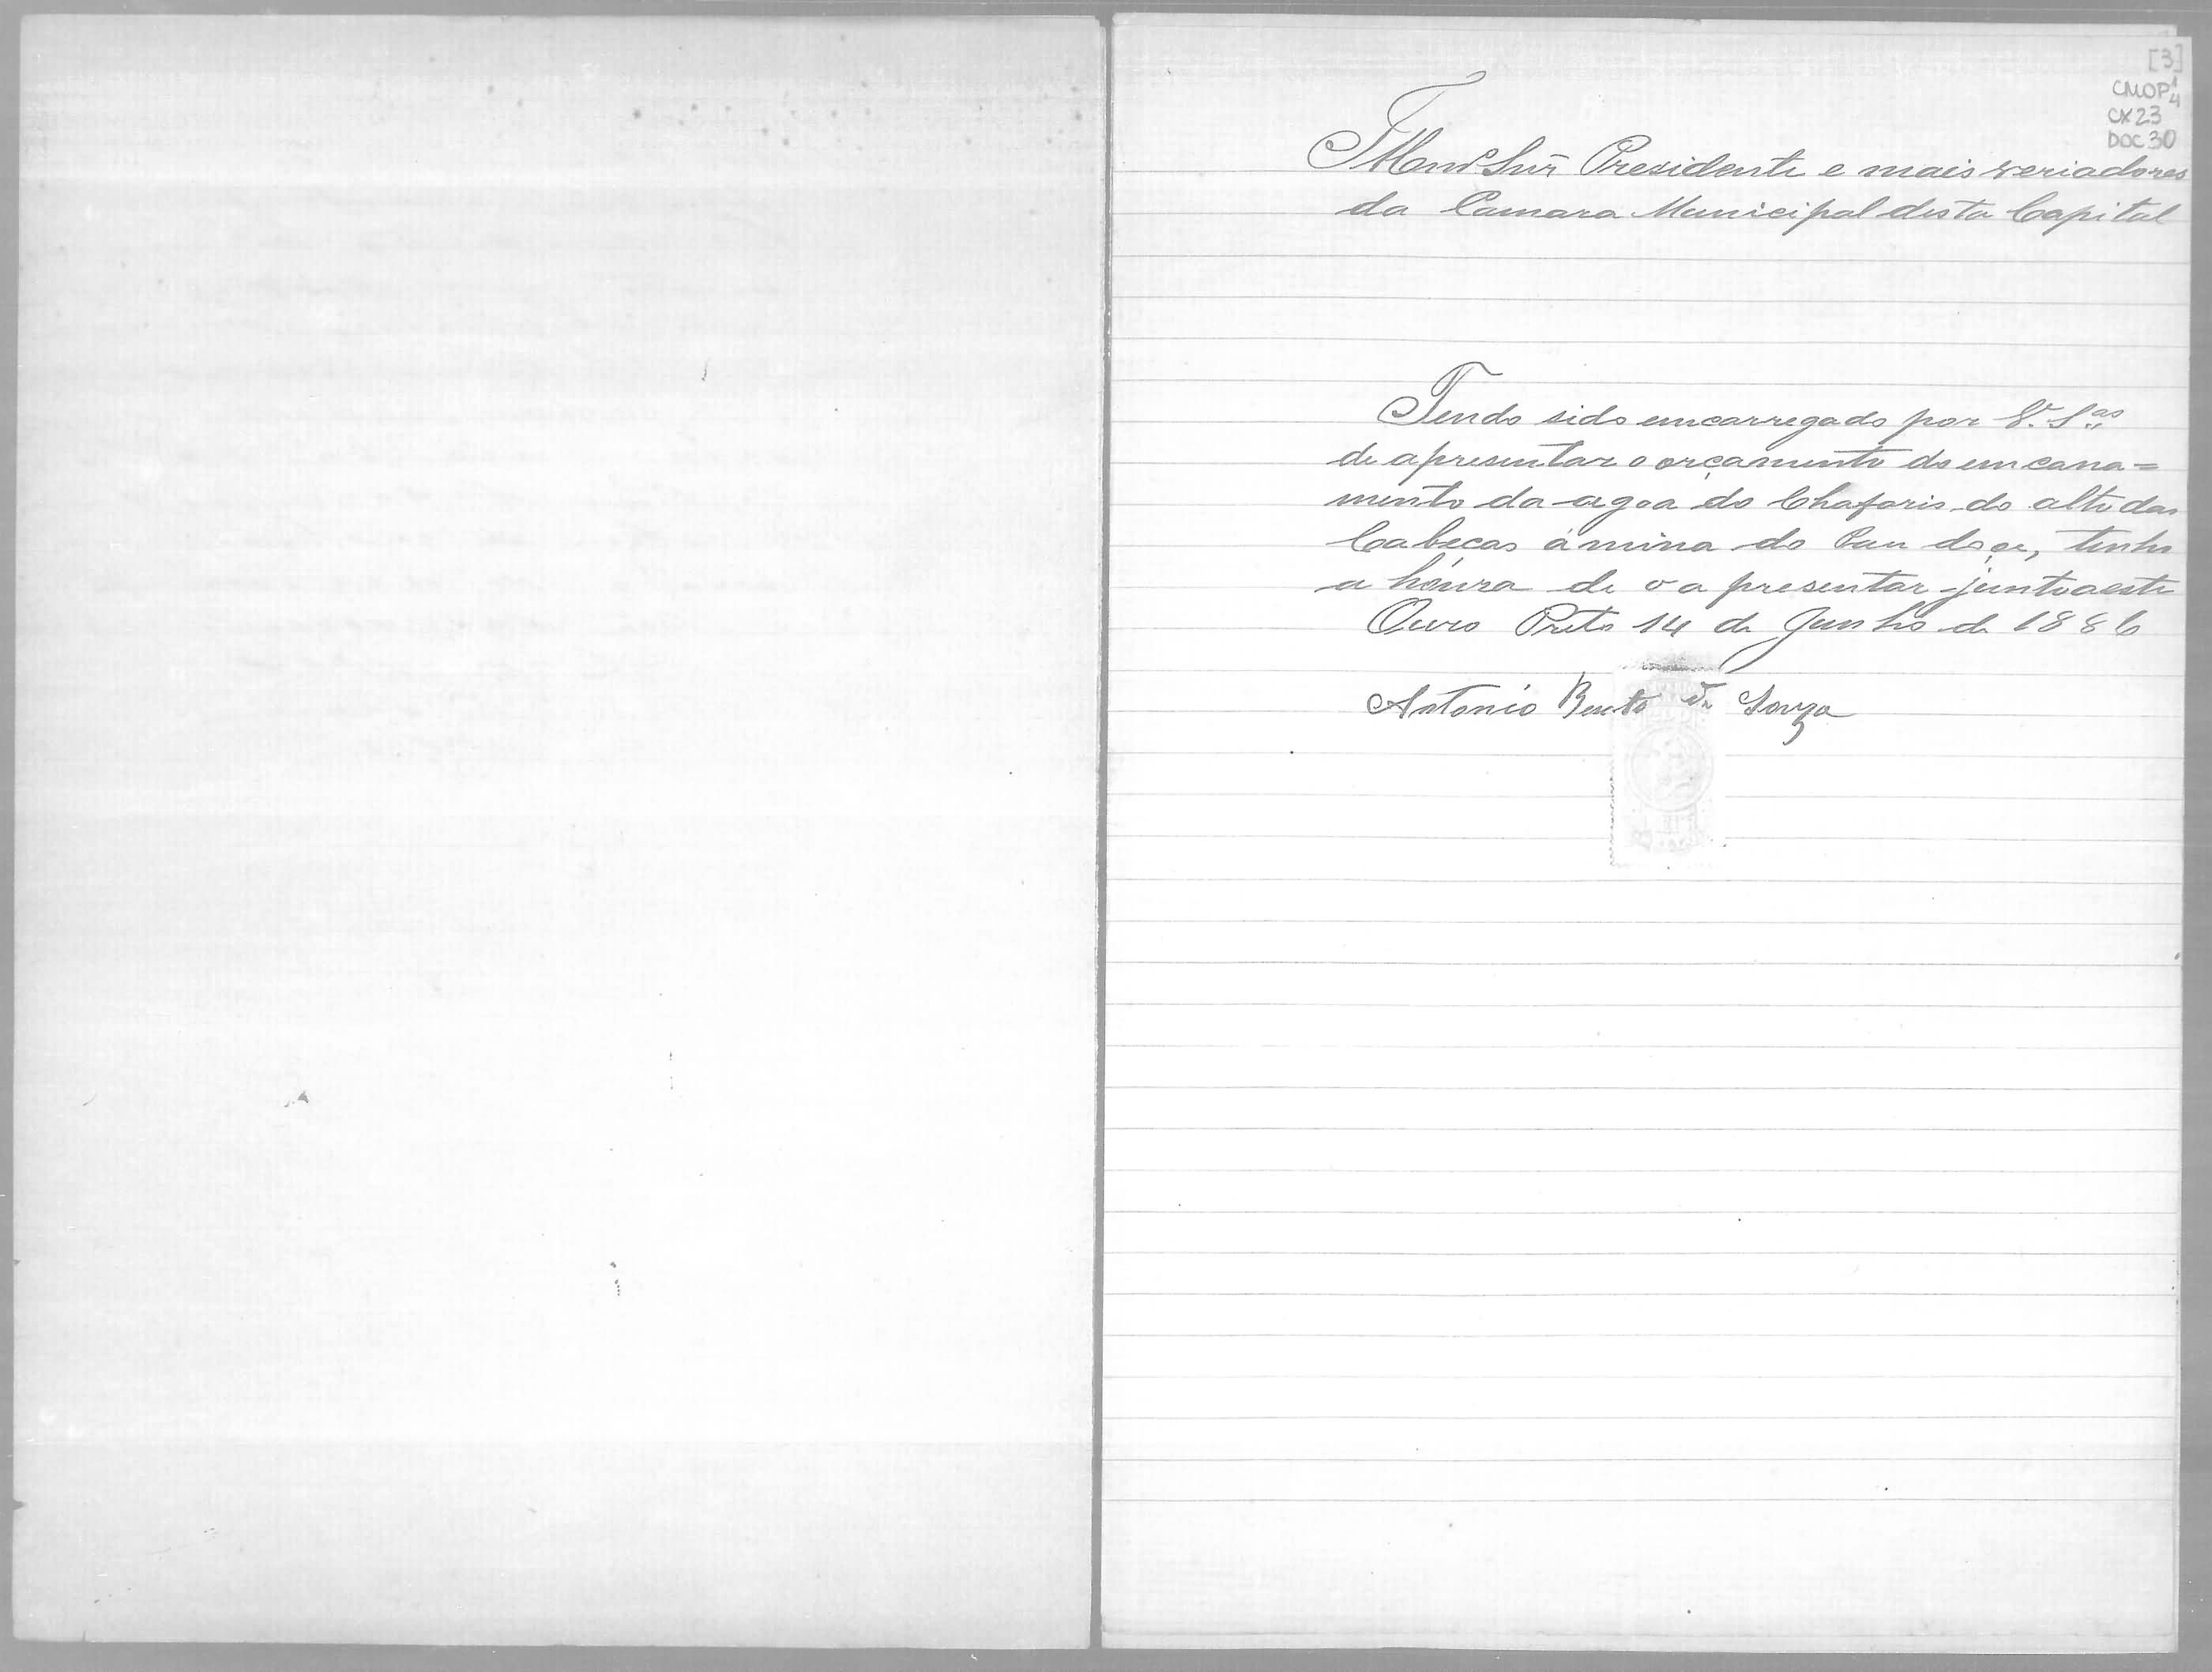 [3]
CMOP 1/4
CX 23
DOC 30
Illmo Snr Presidente e mais veriadores
da Camara Municipal desta Capital
Tendo sido emcarregado por V. S.as
de apresentar o orçamento do emcana=
mento da agoa do Chafaris do alto das
Cabeças á mina do Pau doçe, tenho
a honra de o apresentar junto a este
Ouro Preto 14 de Junho de 1886
Antonio Bento de Souza